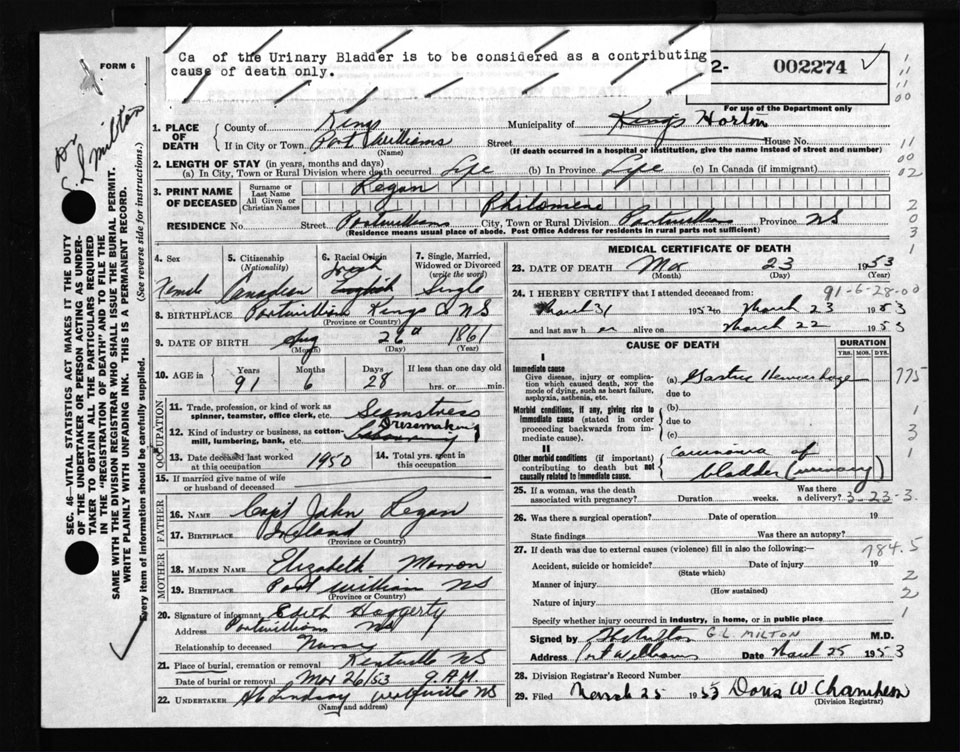 Ca of the Urinary Bladder is to be considered as a contributing
cause of death only.
FORM 6
2- 002274
For use of the Department only
Dr G L Milton
SEC. 46-VITAL STATISTICS ACT MAKES IT THE DUTY
OF THE UNDERTAKER OR PERSON ACTING AS UNDER-
TAKER TO OBTAIN ALL THE PARTICULARS REQUIRED
IN THE "REGISTRATION OF DEATH" AND TO FILE THE
SAME WITH THE DIVISION REGISTRAR WHO SHALL ISSUE THE BURIAL PERMIT.
WRITE PLAINLY WITH UNFADING INK. THIS IS A PERMANENT RECORD.
Every item of information should be carefully supplied. (See reverse side for instructions.)
1. PLACE OF DEATH County of Kings Municipality of Kings Horton
If in City or Town Port Williams (Name) Street House No.
(If death occurred in a hospital or institution, give the name instead of street and number)
2. LENGTH OF STAY (in years, months and days)
(a) In City, Town or Rural Division where death occurred Life (b) In Province Life (c) In Canada (if immigrant)
3. PRINT NAME OF DECEASED Surname or Last Name Regan
All Given or Christian Names Philomene
RESIDENCE No. Street Portwilliams City, Town or Rural Division Portwilliams Province NS
(Residence means usual place of abode. Post Office Address for residents in rural parts not sufficient)
4. Sex Female
5. Citizenship (Nationality) Canadian
6. Racial Origin Irish English
7. Single, Married, Widowed or Divorced (write the word) Single
8. BIRTHPLACE Portwilliam Kings Co NS
(Province or Country)
9. DATE OF BIRTH Aug 26 1861
(Month) (Day) (Year)
10. AGE in Years 91 Months 6 Days 28 If less than one day
hrs. or min.
OCCUPATION
11. Trade, profession, or kind of work as spinner, teamster, office clerk, etc. Seamstress
12. Kind of industry or business, as cotton-mill, lumbering, bank, etc. Dressmaking
13. Date deceased last worked at this occupation 1950
14. Total yrs. spent in this occupation
15. If married give name of wife or husband of deceased
FATHER
16. NAME Capt John Regan
17. BIRTHPLACE Ireland
(Province or Country)
MOTHER
18. MAIDEN NAME Elizabeth
19. BIRTHPLACE Port William NS
(Province or Country)
20. Signature of informant Edith Haggerty
Address Portwilliams NS
Relationship to deceased Nursy
21. Place of burial, cremation or removal Kentville NS
Date of burial or removal Mar 26/53 9. A.M.
22. UNDERTAKER Lindsay Wolfville NS
(Name and address)
MEDICAL CERTIFICATE OF DEATH
23. DATE OF DEATH Mar 23 1953
(Month) (Day)
24. I HEREBY CERTIFY that I attended deceased from: 91-6-28-00
March 31 1952 to March 23 1953
and last saw h er alive on March 22 1953
CAUSE OF DEATH
DURATION
YRS. MOS. DYS.
I
Immediate cause
Give disease, injury or complication which caused death, NOT the mode of dying, such as heart failure, asphyxia, asthenia, etc.
(a) Gastric Hemorrhage
due to
Morbid conditions, if any, giving rise to immediate cause (stated in order proceeding backwards from immediate cause).
(b)
due to
(c)
II
Other morbid conditions (if important) contributing to death but not causally related to immediate cause.
carcinoma of
bladder (urinary)
25. If a woman, was the death associated with pregnancy? Duration weeks. Was there a delivery? 3-23-3.
26. Was there a surgical operation? Date of operation 19
State findings Was there an autopsy?
27. If death was due to external causes (violence) fill in also the following:- 784.5
Accident, suicide or homicide? Date of injury 19
(State which)
Manner of injury
(How sustained)
Nature of injury
Specify whether injury occurred in industry, in home, or in public place
Signed by G L MILTON M.D.
Address Port Williams Date March 25 1953
28. Division Registrar's Record Number
29. Filed March 25 1953 Doris W.
(Division Registrar)